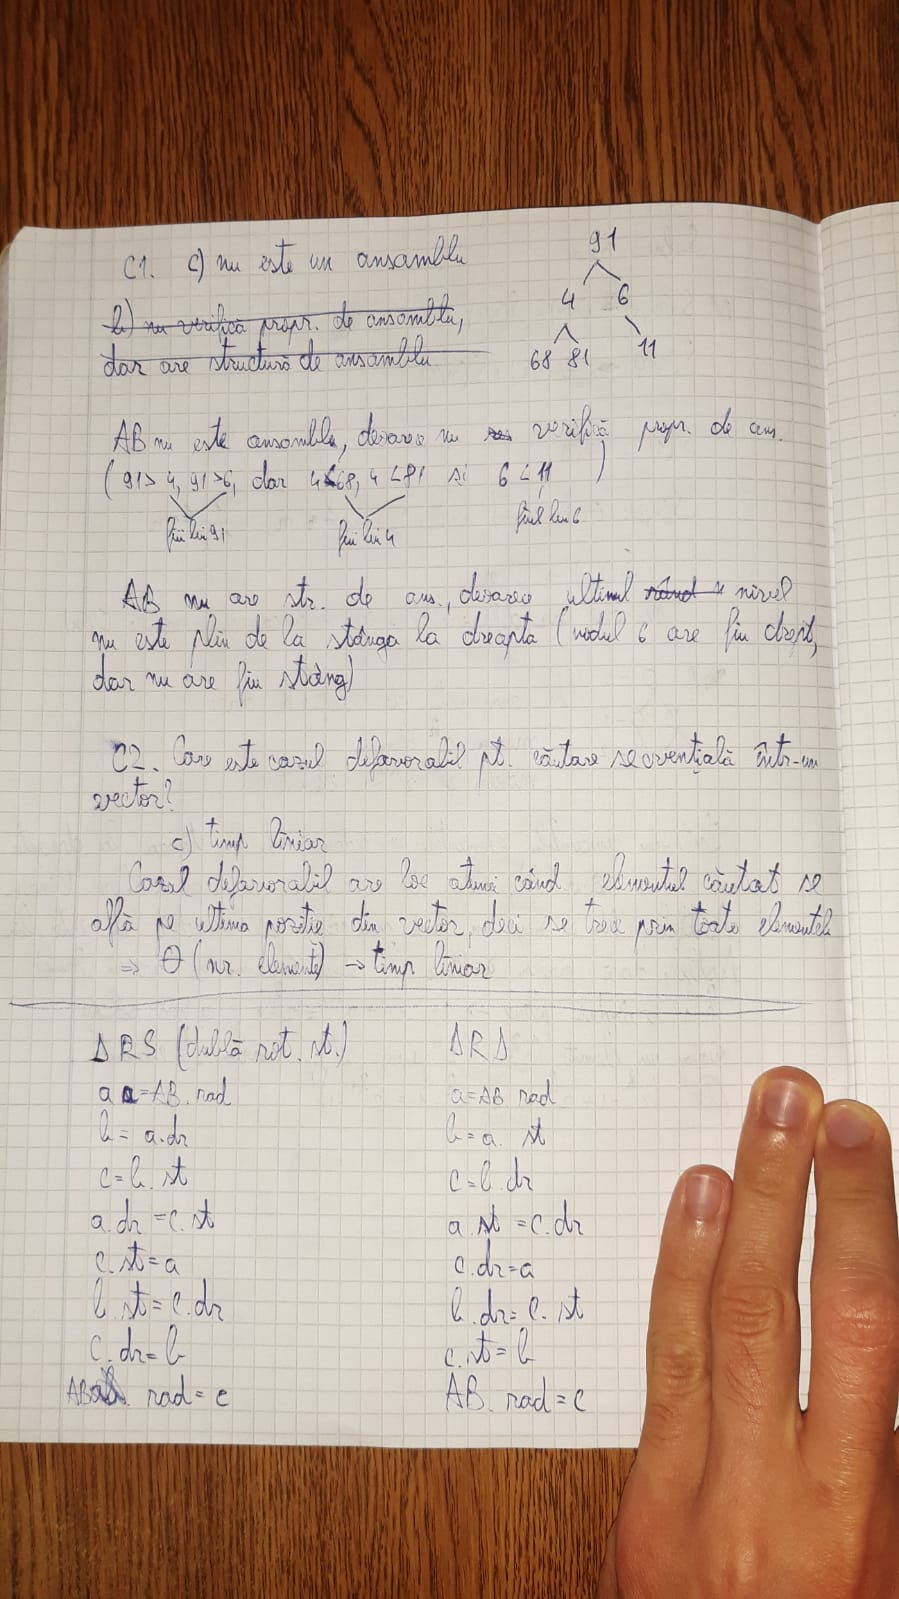 C1. c) nu este un ansamblu
91
4 6
68 81 11
b) nu verifică propr. de ansamblu,
dar are structură de ansamblu
AB nu este ansamblu, deoarece nu verifică propr. de ans.
(91>4, 91>6, dar 4<68, 4<81 si 6<11)
fiii lui 91 fiii lui 4 fiul lui 6
AB nu are str. de ans., deoarece ultimul rând nivel
nu este plin de la stânga la dreapta (nodul 6 are fiu drept,
dar nu are fiu stâng)
C2. Care este cazul defavorabil pt. căutare secvențială într-un
vector?
c) timp liniar
Cazul defavorabil are loc atunci când elementul căutat se
află pe ultima poziție din vector, deci se trece prin toate elementele
⇒ Θ(nr. elemente) → timp liniar
DRS (dublă rot. st.)
a = AB. rad
b = a.dr
c = b. st
a.dr = c. st
c. st = a
b. st = c. dr
c. dr = b
AB. rad = c
DRD
a = AB rad
b = a. st
c = b. dr
a. st = c. dr
c. dr = a
b. dr = c. st
c. st = b
AB. rad = c